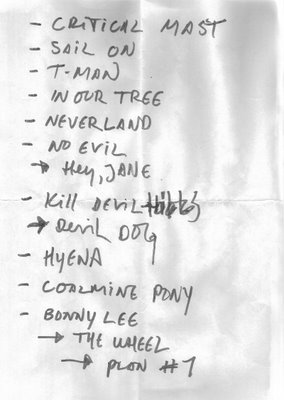 - CRITICAL MAST
- SAIL ON
- T-MAN
- IN OUR TREE
- NEVERLAND
- NO EVIL
→ Hey, JANE
- Kill DEVIL Hills
→ DEVIL DOG
- HYENA
- COALMINE PONY
- BONNY LEE
→ THE WHEEL
→ PLAN #1